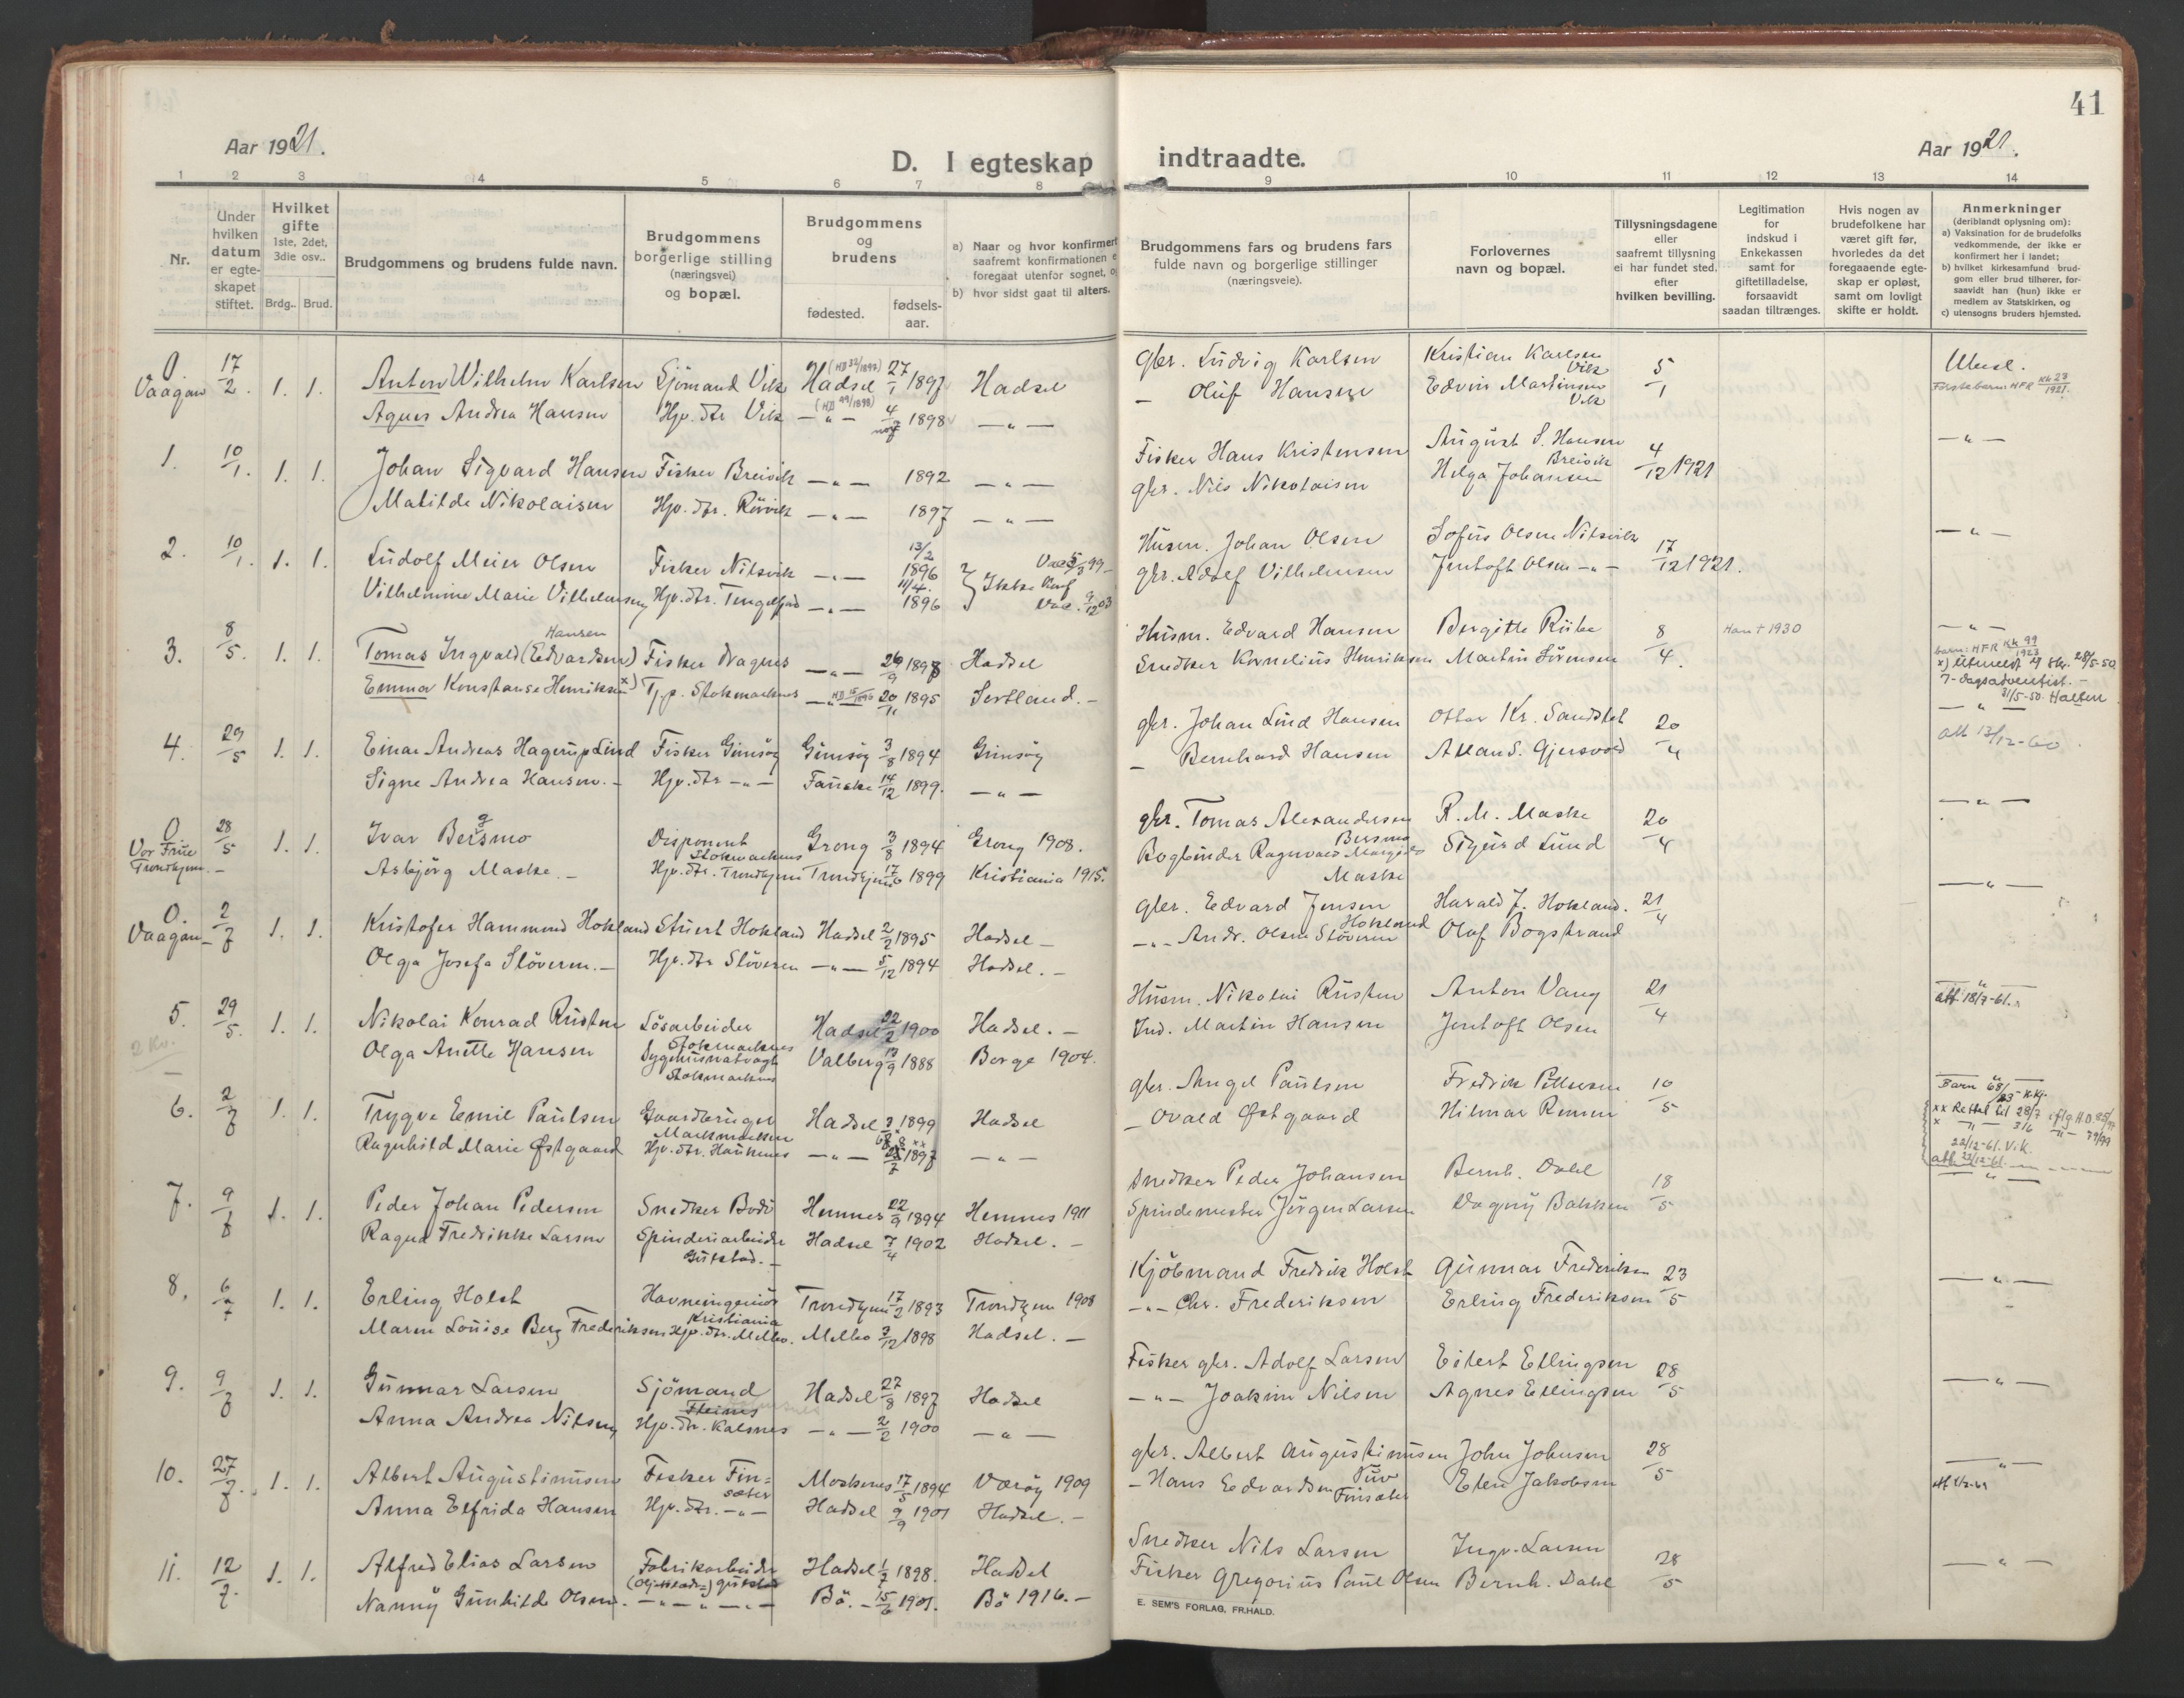 41
Aar 1921.
Aar 1921.
D. I egteskap indtraadte.
1 2 3 4 5 6 7 8 9 10 11 12 13 14
Nr.
Under hvilken datum er egteskapet stiftet.
Hvilket gifte 1ste, 2det, 3die osv..
Brdg.. Brud.
Brudgommens og brudens fulde navn.
Brudgommens borgerlige stilling (næringsvei) og bopæl.
Brudgommens og brudens
fødested.
fødselsaar.
a) Naar og hvor konfirmert
saafremt konfirmationen e
foregaat utenfor sognet, o
b) hvor sidst gaat til alters.
Brudgommens fars og brudens fars fulde navn og borgerlige stillinger (næringsveie).
Forlovernes navn og bopæl.
Tillysningsdagene eller saafremt tillysning ei har fundet sted. efter hvilken bevilling.
Legitimation for indskud i Enkekassen samt for giftetilladelse, forsaavidt saadan tiltrænges.
Hvis nogen av brudefolkene har været gift før, hvorledes da det foregaaende egteskap er opløst, samt om lovligt skifte er holdt.
Anmerkninger
(deriblandt oplysning om):
a) Vaksination for de brudefolks vedkommende, der ikke er konfirmert her i landet;
b) hvilket kirkesamfund brudgom eller brud tilhører, forsaavidt han (hun) ikke er medlem av Statskirken, og
c) utensogns bruders hjemsted.
0. Vaagan 17/2. 1. 1. Anton Wilhelm Karlsen Sjömand Vik Hadsel 27/1 1897 Hadsel gbr. Ludvig Karlsen Kristian Karlsen Vik 5/1
Agnes Andrea Hansen Hjv. dtr Vik —"— 4/ 1898 —"— — Oluf Hansen Edvin Martinsen Vik
1. 10/1. 1. 1. Johan Sigvard Hansen Fisker Breivik —"— 1892 —"— Fisker Hans Kristensen August S. Hansen Breivik 4/12 1921 —"—
Matilde Nikolaisen Hjv. dtr. Rörvik —"— 1897 —"— gbr. Nils Nikolaisen Helga Johansen
2. 10/1. 1. 1. Ludolf Meier Olsen Fisker Nilsvik —"— 13/2 1896 } Ikke konf Husm. Johan Olsen Sofus Olsen Nilsvik 17/12 1921. —"—
Vilhelmine Marie Vilhelmsen Hjv. dtr. Tengelfjord —"— 11/4. 1896 gbr. Adolf Vilhelmsen Jentoft Olsen —"—
3. 8/5. 1. 1. Tomas Ingvald (Edvardsen) Hansen Fisker Dragnes —"— 26/9 1898 Hadsel Husm. Edvard Hansen Bergitte Riibe 8/4. Han † 1930 —"—
Emma Konstanse Henriksen x) Tjp. Stokmarknes —"— 20/11 1895 Sortland. — Snedker Kornelius Henriksen Martin Sörensen
x) Utmeldt 28/5-50
7-dagsadventist. —
4. 29/5 1. 1. Einar Andreas Hagerup Lind Fisker Gimsöy Gimsöy 3/8 1894 Gimsöy gbr. Johan Lind Hansen Ottar Kr. Sandslet 20/4 —"—
Signe Andrea Hansen. — Hjv. dtr —"— Fauske 14/12 1899. —"— — Bernhard Hansen Allan S. Gjersvold att 13/12-60
0. Vor Frue Trondhjem. — 28/5 1. 1. Ivar Bergsmo Disponent Stokmarknes Grong 3/8 1894 Grong 1908. gbr. Tomas Alexandersen Bersmo R. M. Maske 20/4 —"—
Asbjörg Maske. — Hjv. dtr. Trondhjem Trondhjem 17/6 1899 Kristiania 1915. Bogbinder Ragnvald Maske Sigurd Lund
0. Vaagan — 2/7 1. 1. Kristofer Hammond Hokland Stuert Hokland Hadsel 2/2 1895 Hadsel — gbr. Edvard Jensen Hokland Harald J. Hokland. 21/4 —"—
Olga Josefa Slöveren. — Hjv. dtr Slöveren —"— 5/12 1894 Hadsel. — —"— Andr. Olsen Slöveren Olaf Bogstrand
5. 29/5. 1. 1. Nikolai Konrad Rusten Lösarbeider Stokmarknes Hadsel 22/2 1900 Hadsel. — Husm. Nikolai Rusten Anton Vang 21/4 —"—
2 Kv. Olga Anette Hansen Sygehusnatvagt Stokmarknes Valberg 13/9 1888 Borge 1904. Ind. Martin Hansen Jentoft Olsen att 18/7-61.
6. 2/7 1. 1. Trygve Emil Paulsen Gaardbruger Hadsel 1899 Hadsel gbr. Angel Paulsen Fredrik Pettersen 10/5 —"—
Ragnhild Marie Østgaard Hjv. dtr. Hauknes —"— 1897 —"— — Ovald Østgaard Hilmar Rinnen
xx Rettet til 28/7 iflg H.D.
22/12-61. V.K.
att 22/12-61.
7. 9/7 1. 1. Peder Johan Pedersen Snedker Bodö Hemnes 22/9 1894 Hemnes 1911 Snedker Peder Johansen Bernh. Dahl 18/5 —"—
Ragna Fredrikke Larsen Spinderiarbeider Gulstad. — Hadsel 7/4 1902 Hadsel. — Spindemester Jörgen Larsen Dagny Bakken
8. 6/7 1. 1. Erling Holst Havneingeniör Kristiania Trondhjem 17/2 1893 Trondhjem 1908 Kjöbmand Fredrik Holst Gunnar Frederiksen 23/5 —"—
Maren Louise Berg Frederiksen Hjv. dtr. Melbo. Melbo 3/12 1898 Hadsel. — —"— Chr. Frederiksen Erling Frederiksen
9. 9/7 1. 1. Gunnar Larsen Sjömand Hadsel 27/8 1897 Hadsel Fisker gbr. Adolf Larsen Eilert Ellingsen 28/5 —"—
Anna Andrea Nilsen Hjv. dtr. Kalsnes —"— 2/2 1900 —"— —"— Joakim Nilsen Agnes Ellingsen
10. 27/7. 1. 1. Albert Augustinusen Fisker Finsæter Moskenes 17/5 1894 Værøy 1909 gbr. Albert Augustinusen Tuv John Johnsen 28/5 —"—
Anna Elfrida Hansen Hjv. dtr. —"— Hadsel 9/9 1901 Hadsel. — — Hans Edvardsen Finsæter Elen Jakobsen
11. 12/7. 1. 1. Alfred Elias Larsen Fabrikarbeider Gulstad Hadsel 1/7 1898. Hadsel Snedker Nils Larsen Ingv. Larsen 28/5 —"—
Nanny Gunhilde Olsen. —"—"— Bö. — 15/6 1901. Bö 1916. — Fisker Gregorius Paul Olsen Bernh. Dahl
E. SEM'S FORLAG, FR.HALD.